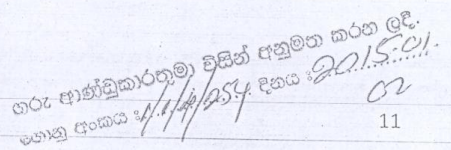 ගරු ආණ්ඩුකාරතුමා විසින් අනුමත කරන ලදී.
ගොනු අංකය : දිනය : 2015.01.02
11